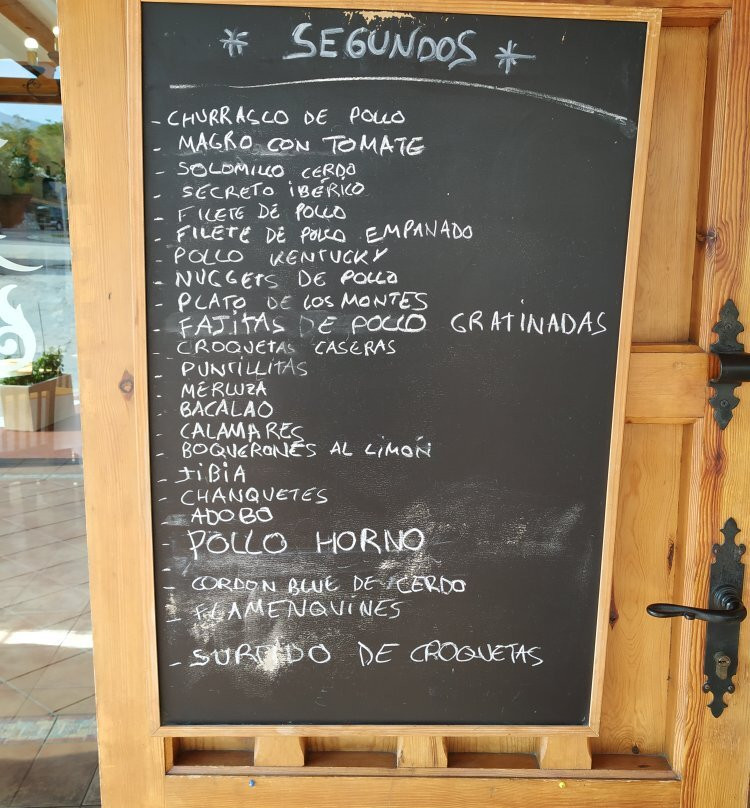 * SEGUNDOS *
- CHURRASCO DE POLLO
- MAGRO CON TOMATE
- SOLOMILLO CERDO
- SECRETO IBÉRICO
- FILETE DE POLLO
- FILETE DE POLLO EMPANADO
- POLLO KENTUCKY
- NUGGETS DE POLLO
- PLATO DE LOS MONTES
- FAJITAS DE POLLO GRATINADAS
- CROQUETAS CASERAS
- PUNTILLITAS
- MERLUZA
- BACALAO
- CALAMARES
- BOQUERONES AL LIMÓN
- JIBIA
- CHANQUETES
- ADOBO
- POLLO HORNO
- CORDON BLUE DE CERDO
- FLAMENQUINES
- SURTIDO DE CROQUETAS